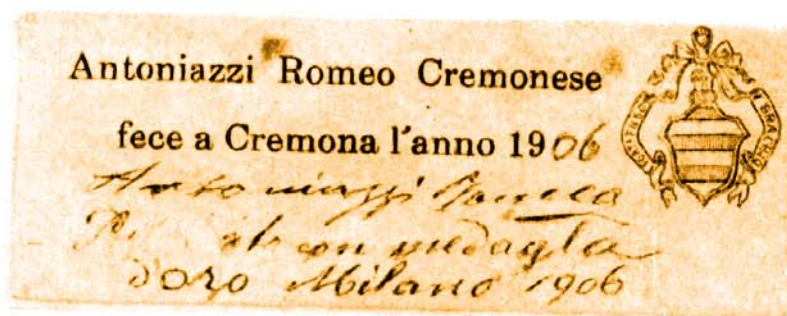 Antoniazzi Romeo Cremonese
fece a Cremona l'anno 1906
Antoniazzi Romeo
con medaglia
d'oro Milano 1906